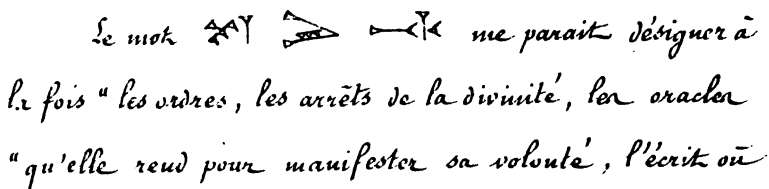 Le mot me parait désigner à
la fois " les ordres, les arrêts de la divinité, les oracles
" qu'elle rend pour manifester sa volonté, l'écrit où